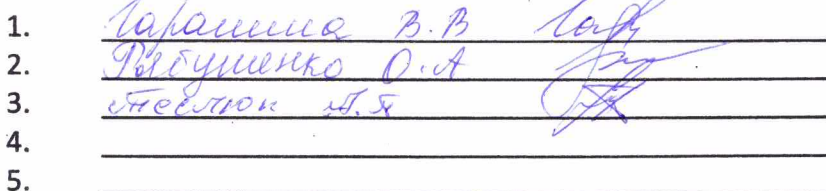 1. Гарашина В.В
2. Рябушенко О.А
3. Теслюк
4.
5.